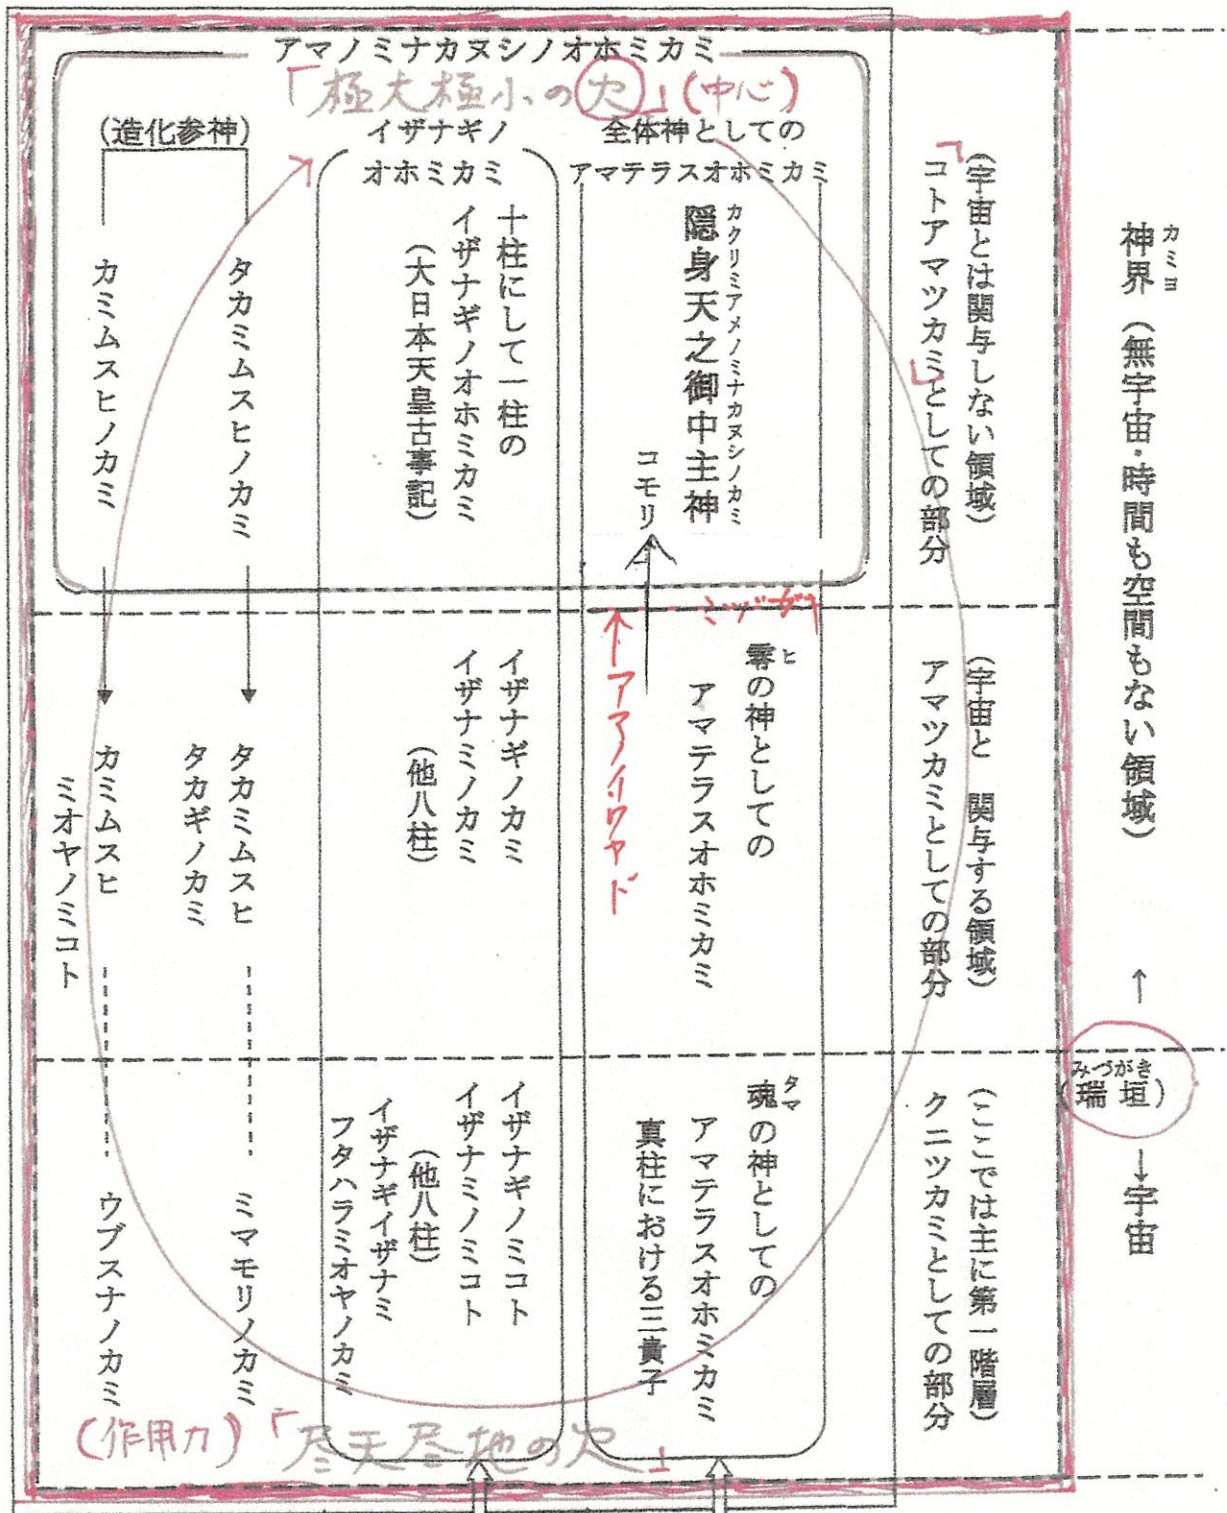 神界（無宇宙・時間も空間もない領域）
カミヨ
↑
（瑞垣）
みづがき
↓宇宙
（宇宙とは関与しない領域）
「コトアマツカミ」としての部分
（宇宙と　関与する領域）
アマツカミとしての部分
（ここでは主に第一階層）
クニツカミとしての部分
アマノミナカヌシノオホミカミ
「極大極小の穴」(中心)
全体神としての
アマテラスオホミカミ
隠身天之御中主神
カクリミアメノミナカヌシノカミ
コモリ
ミヅガキ
↑アマノイワヤド
零の神としての
ヒ
アマテラスオホミカミ
魂の神としての
タマ
アマテラスオホミカミ
真柱における三貴子
イザナギノ
オホミカミ
十柱にして一柱の
イザナギノオホミカミ
（大日本天皇古事記）
イザナギノカミ
イザナミノカミ
（他八柱）
イザナギノミコト
イザナミノミコト
（他八柱）
イザナギイザナミ
フタハラミオヤノカミ
（造化参神）
タカミムスヒノカミ
カミムスヒノカミ
タカミムスヒ
タカギノカミ
カミムスヒ
ミオヤノミコト
ミマモリノカミ
ウブスナノカミ
(作用力)「尽天尽地の穴」